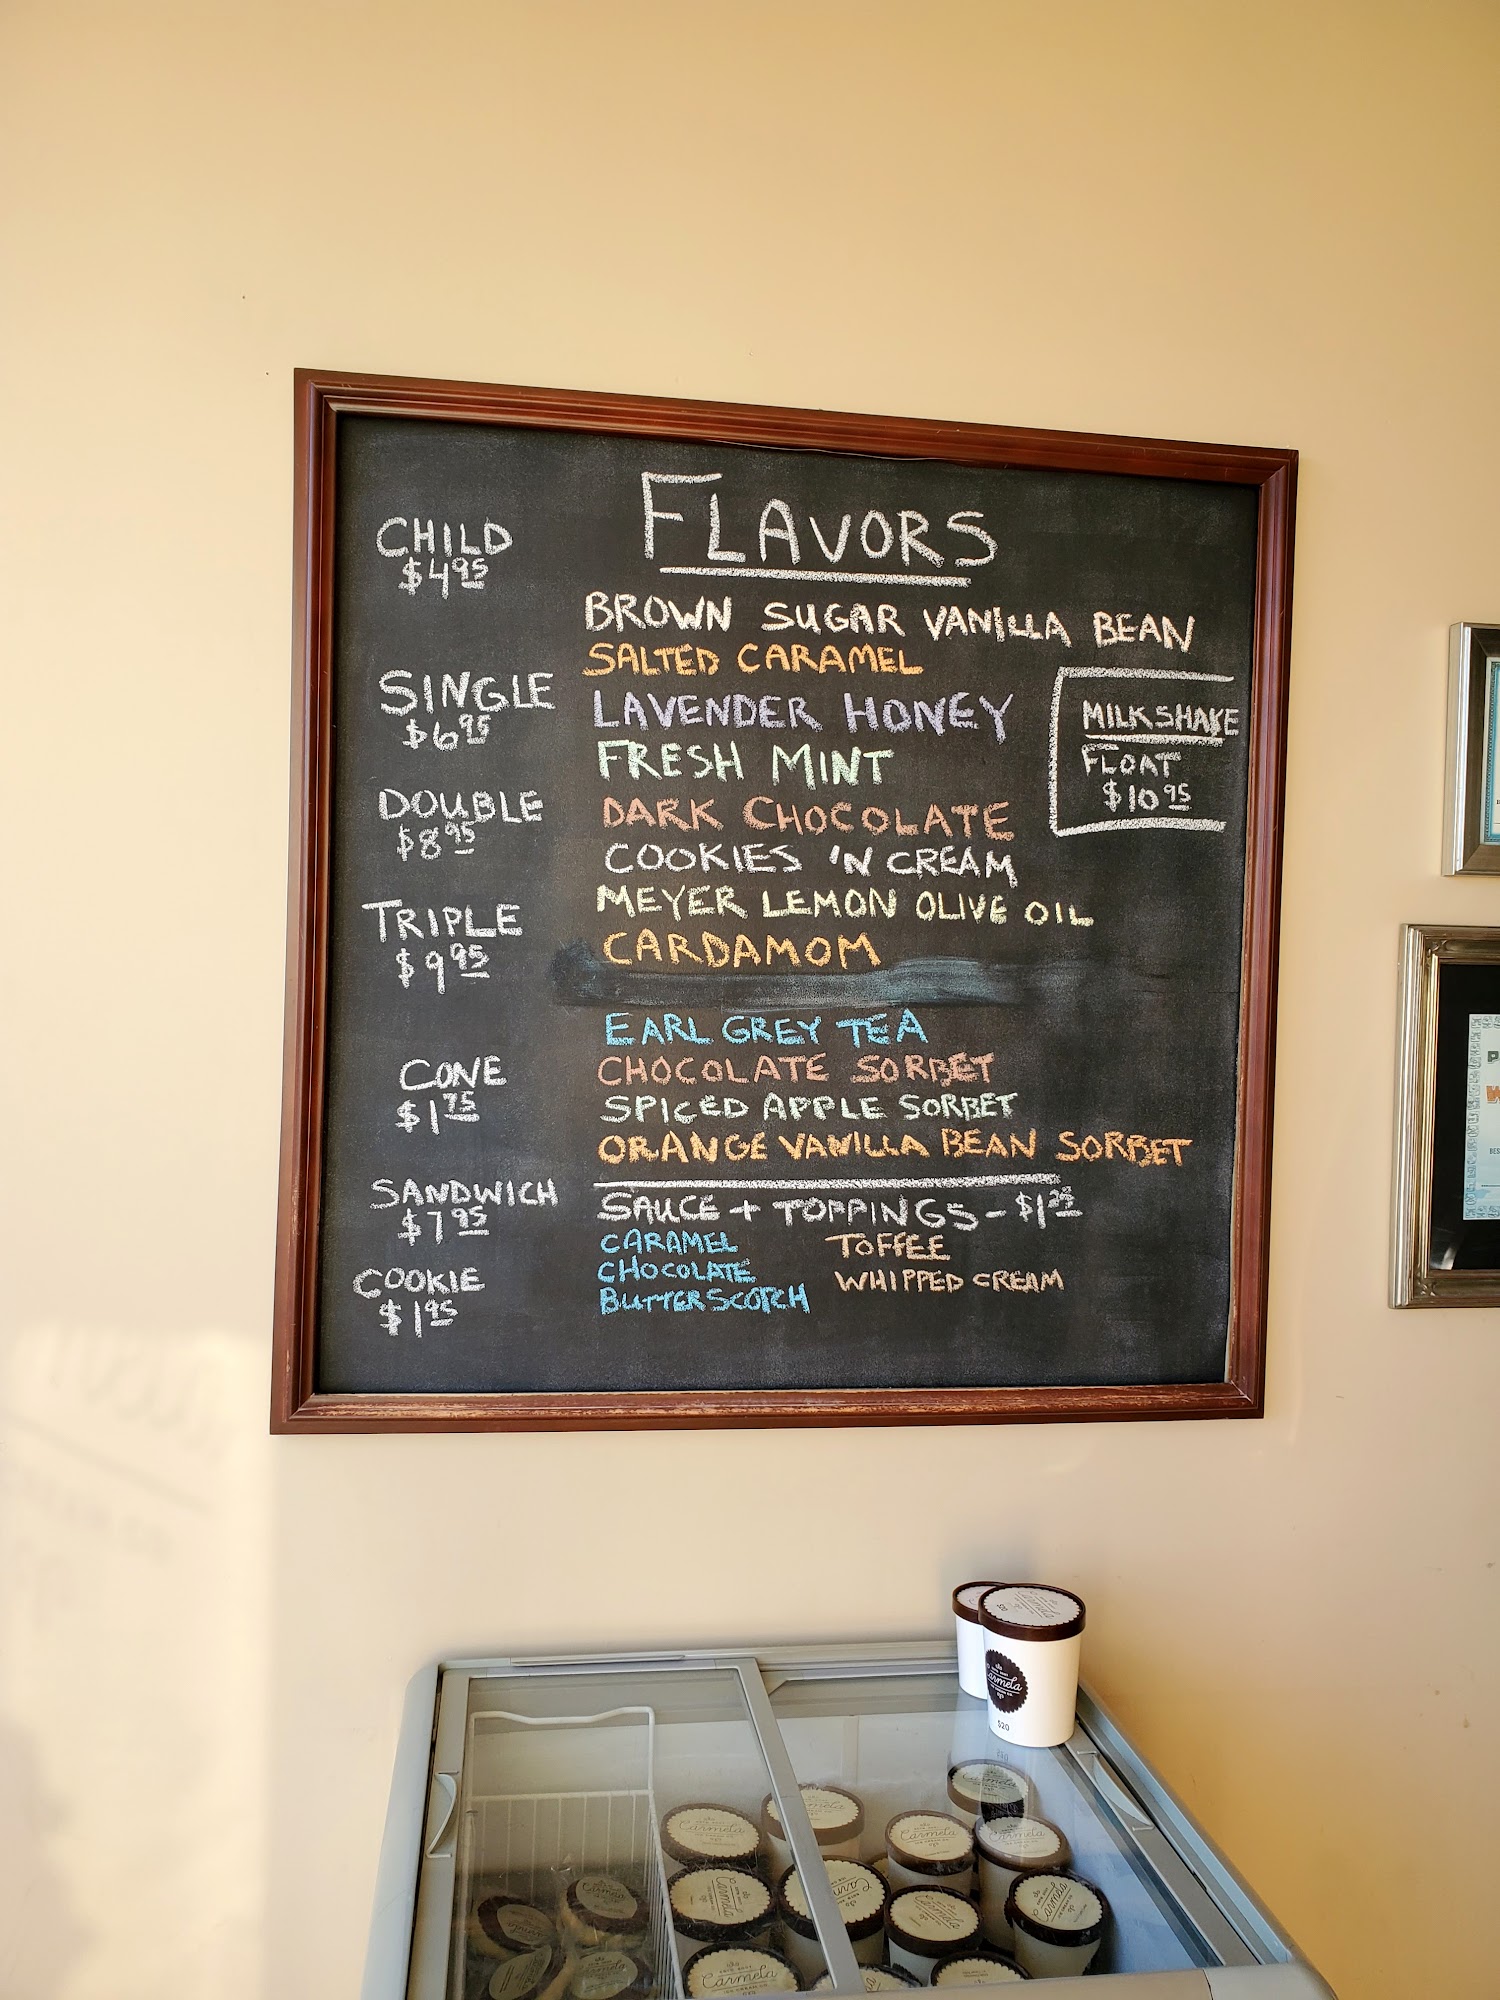 FLAVORS
CHILD
$4.95
SINGLE
$6.95
DOUBLE
$8.95
TRIPLE
$9.95
CONE
$1.75
SANDWICH
$7.95
COOKIE
$1.95
BROWN SUGAR VANILLA BEAN
SALTED CARAMEL
LAVENDER HONEY
FRESH MINT
DARK CHOCOLATE
COOKIES 'N CREAM
MEYER LEMON OLIVE OIL
CARDAMOM
EARL GREY TEA
CHOCOLATE SORBET
SPICED APPLE SORBET
ORANGE VANILLA BEAN SORBET
MILKSHAKE
FLOAT
$10.95
SAUCE + TOPPINGS - $1.25
CARAMEL
CHOCOLATE
BUTTERSCOTCH
TOFFEE
WHIPPED CREAM
Carmela
$20
Carmela
Carmela
Carmela
Carmela
Carmela
Carmela
Carmela